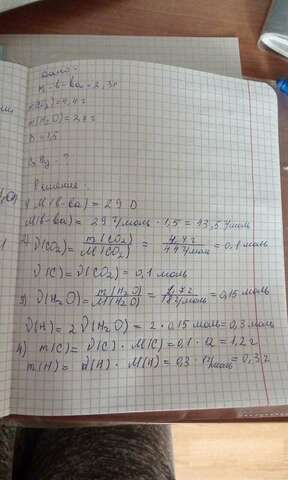 Дано:
m в-ва = 2,3г
m(CO₂)=4,4г
m(H₂O)=2,7г
D=1,5
Решение:
1) M(в-ва) = 29 D
M(в-ва) = 29 г/моль · 1,5 = 43,5 г/моль
2) ν(CO₂) = m(CO₂)/M(CO₂) = 4,4г/44г/моль = 0,1 моль
ν(C) = ν(CO₂) = 0,1 моль
3) ν(H₂O) = m(H₂O)/M(H₂O) = 2,7г/18г/моль = 0,15 моль
ν(H) = 2 ν(H₂O) = 2 · 0,15 моль = 0,3 моль
4) m(C) = ν(C) · M(C) = 0,1 · 12 = 1,2 г
m(H) = ν(H) · M(H) = 0,3 · 1г/моль = 0,3 г